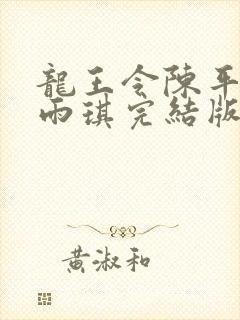 龍王令陳平
雨琪完結版
黃淑和